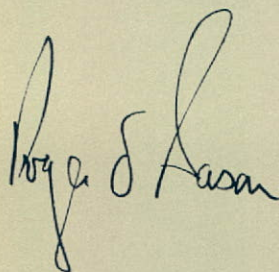 Roger S Sason